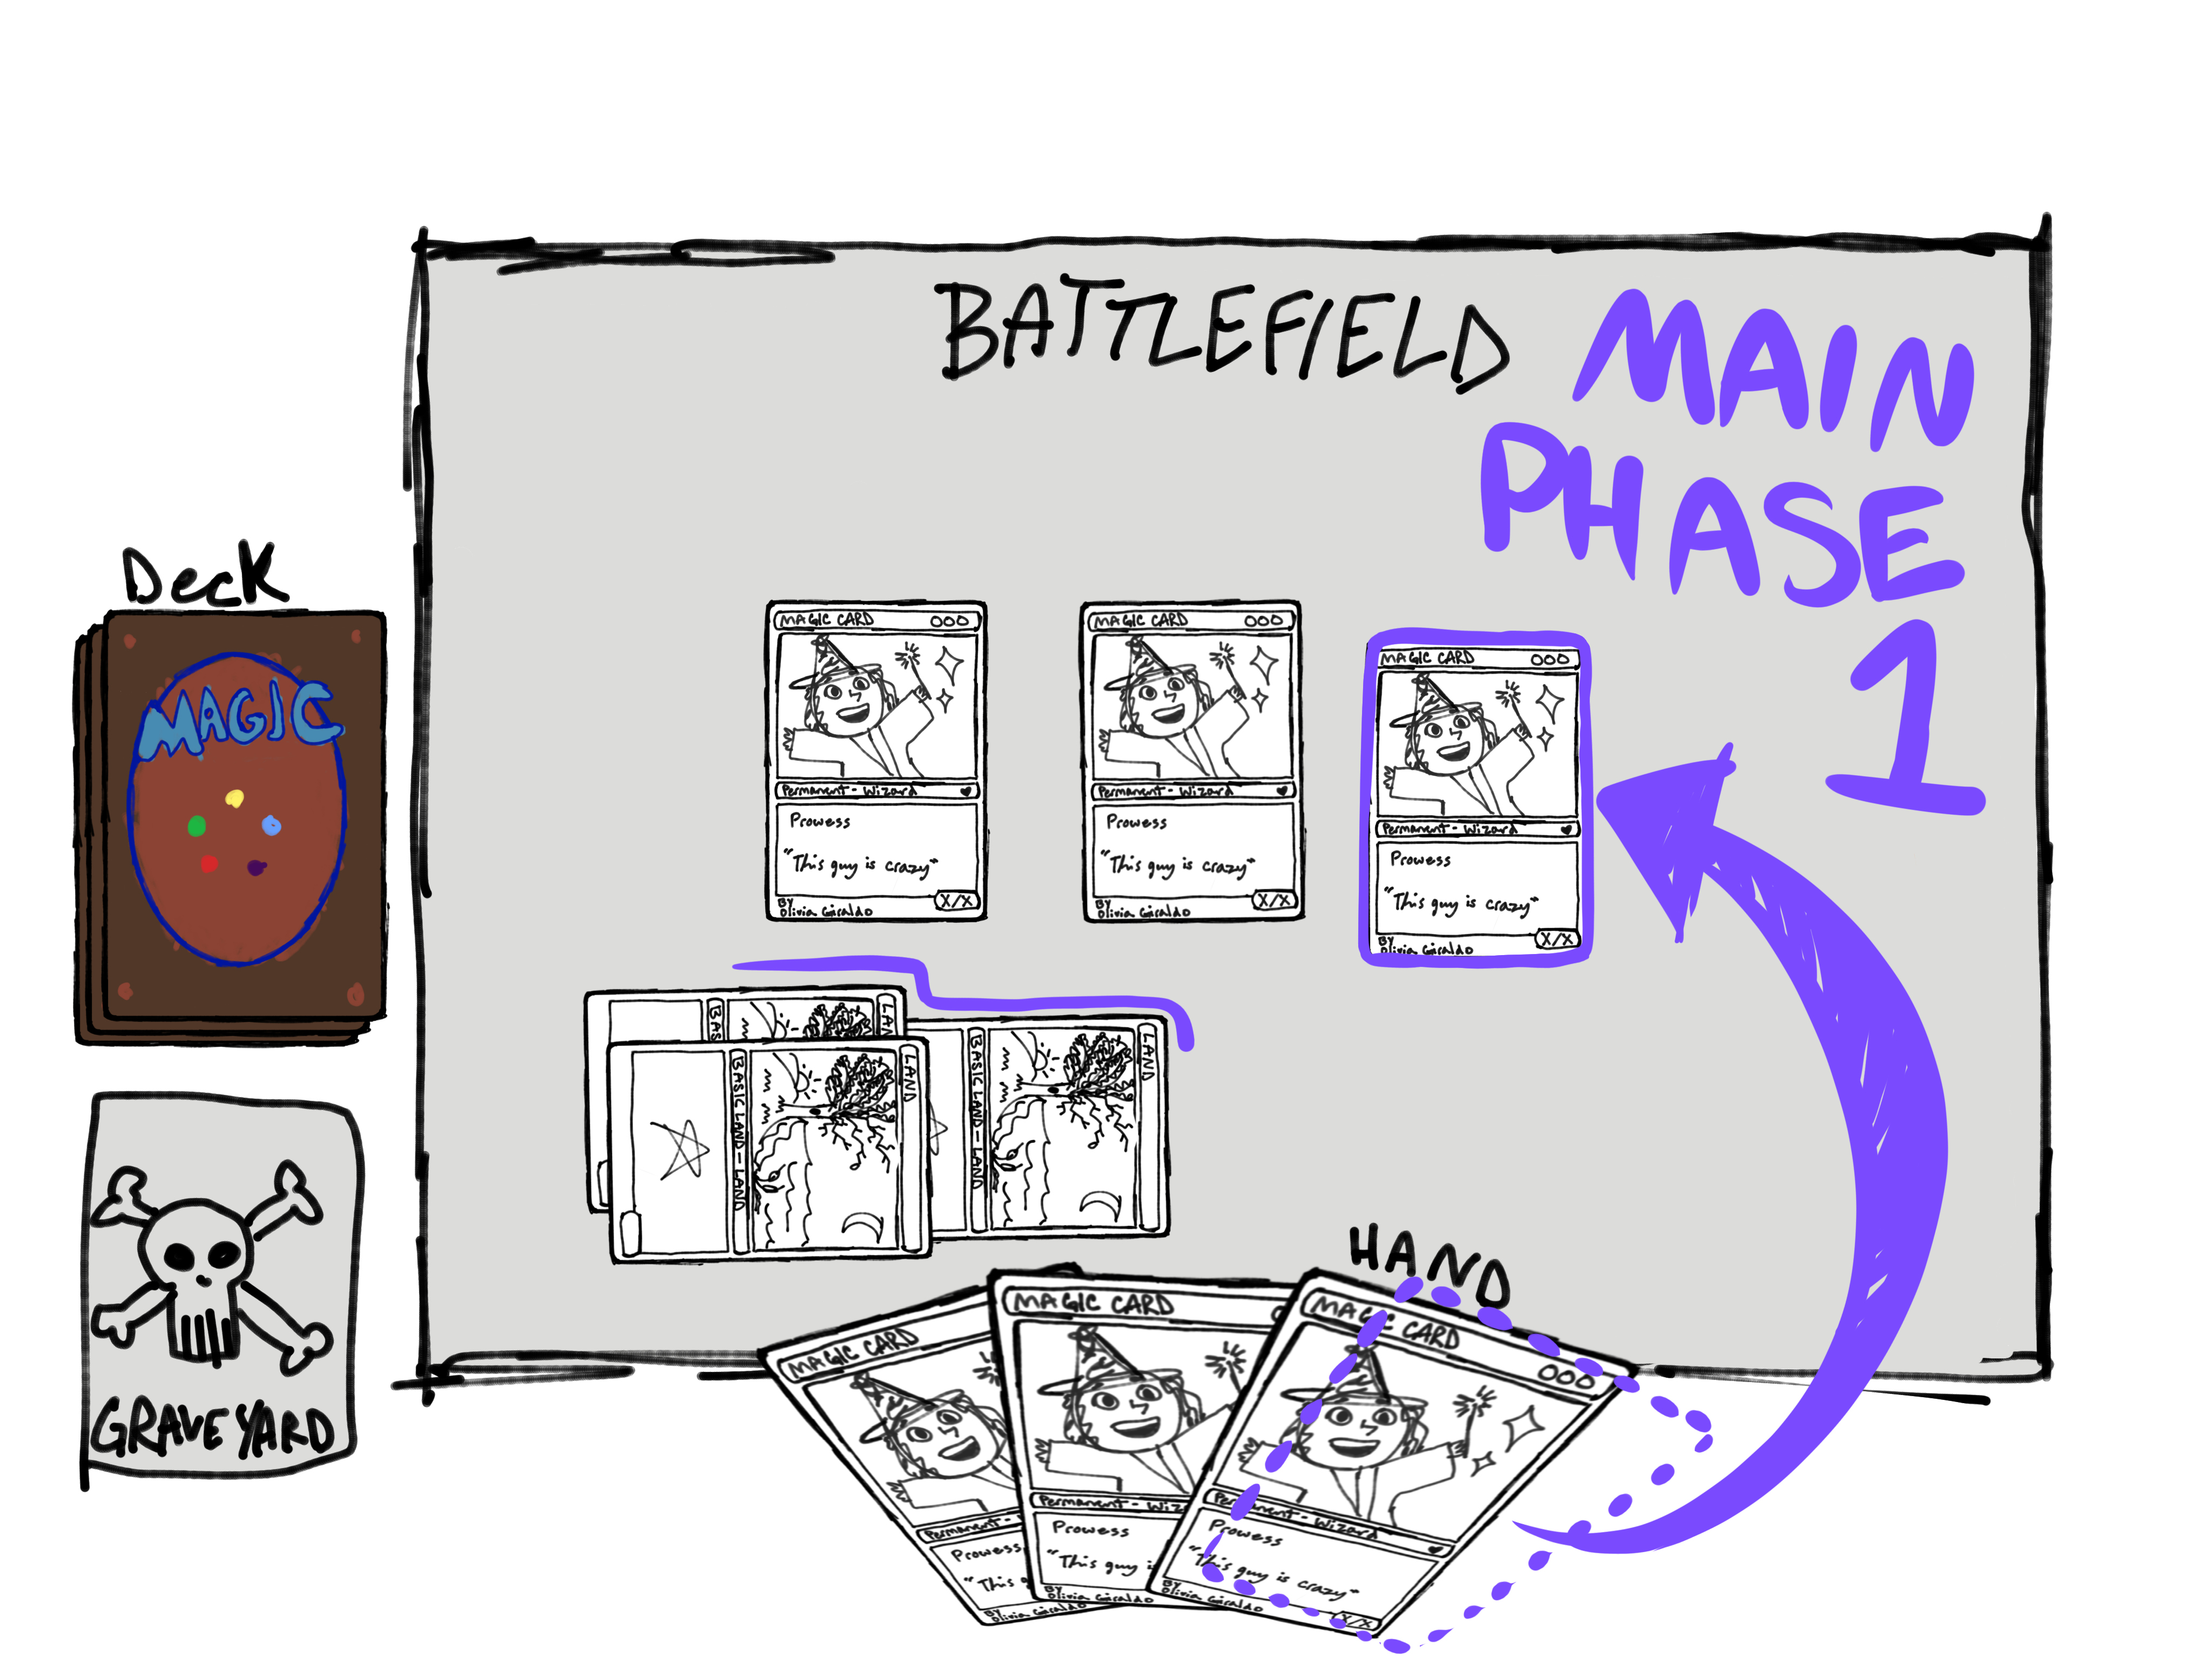 BATTLEFIELD
MAIN
PHASE
1
Deck
MAGIC
MAGIC CARD
Permanent - Wizard
Prowess
"This guy is crazy"
X/X
BY
Olivia Giraldo
MAGIC CARD
Permanent - Wizard
Prowess
"This guy is crazy"
X/X
BY
Olivia Giraldo
MAGIC CARD
Permanent - Wizard
Prowess
"This guy is crazy"
X/X
BY
Olivia Giraldo
LAN
BAS
LAND
BASIC LAND - LAND
LAND
BASIC LAND - LAND
GRAVEYARD
HAND
MAGIC CARD
Permanent -
Prowess
"This g
BY
Olivia Giraldo
MAGIC CARD
Permanent - Wiz
Prowess
"This guy i
BY
Olivia Giraldo
MAGIC CARD
Permanent - Wizard
Prowess
"This guy is crazy"
X/X
BY
Olivia Giraldo